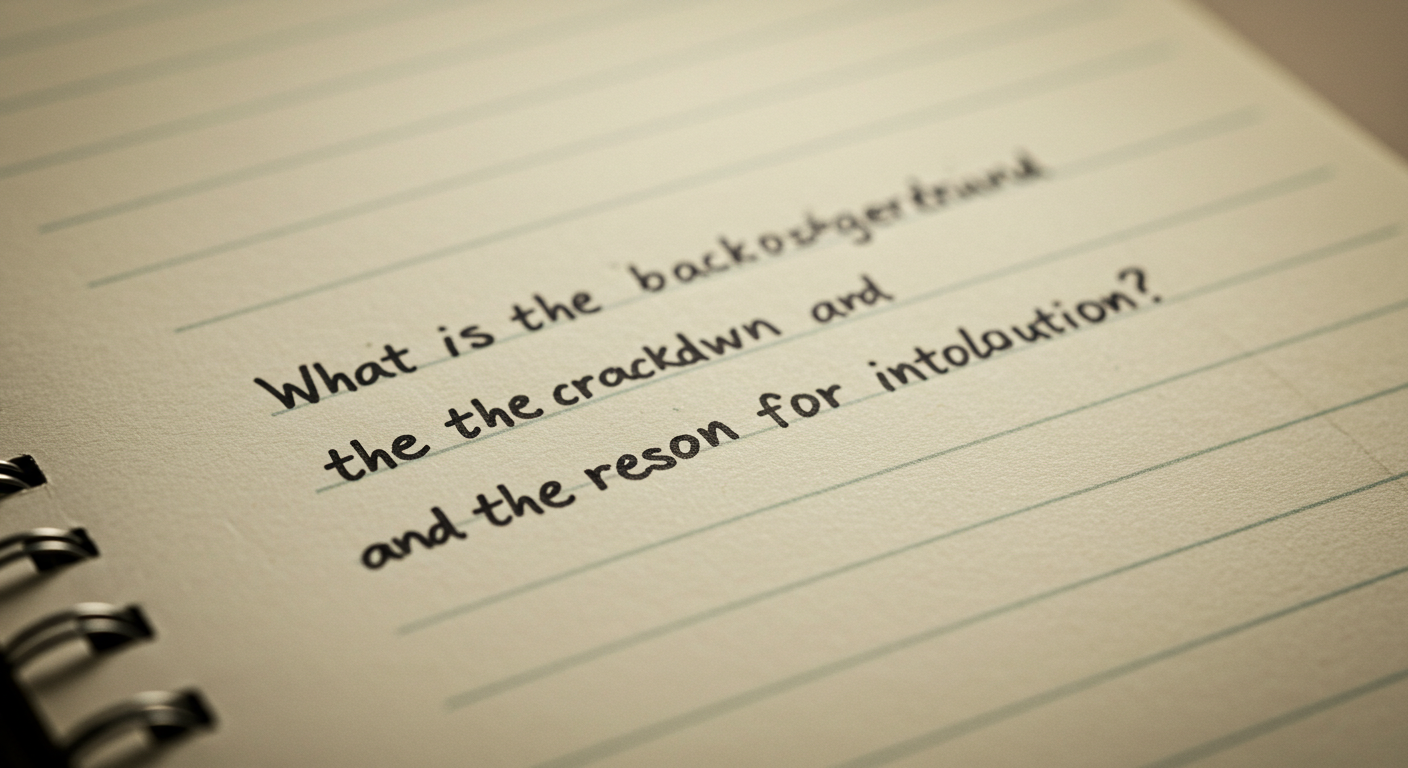 What is the backostgertrund
the the crackdwn and
and the reson for intoloution?